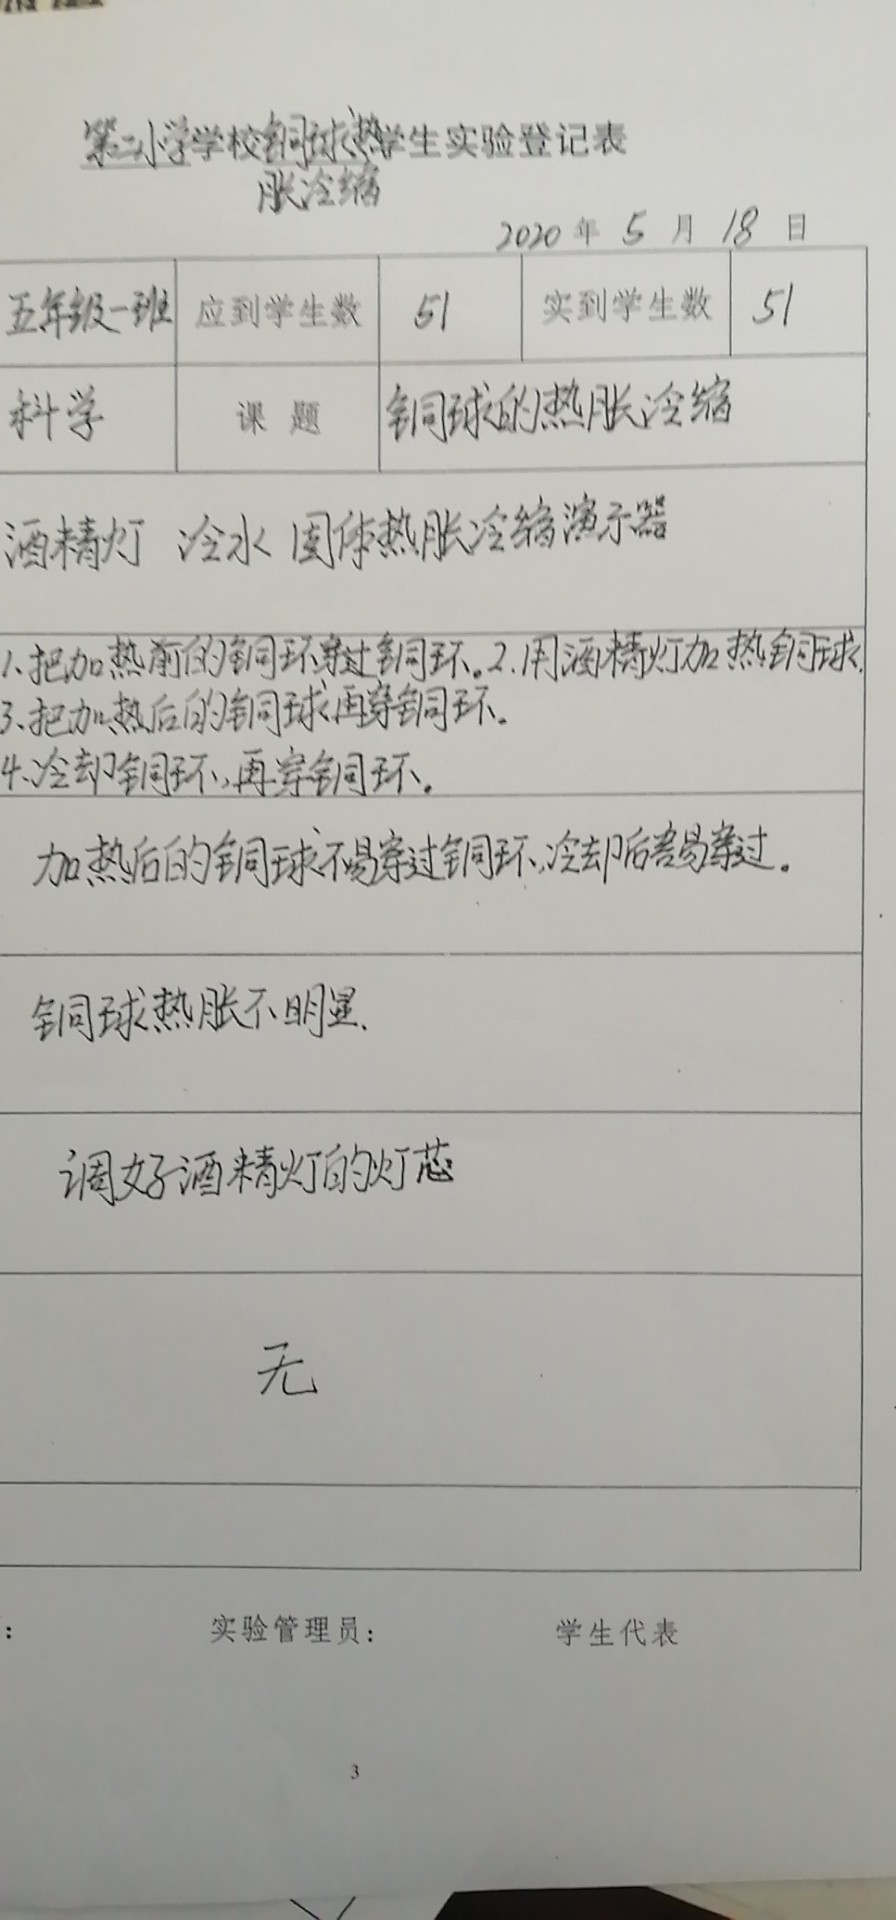 第二小学学校铜球热学生实验登记表
胀冷缩
2020 年 5 月 18 日
五年级一班 应到学生数 51 实到学生数 51
科学 课 题 铜球的热胀冷缩
酒精灯 冷水 固体热胀冷缩演示器
1、把加热前的铜环穿过铜环。2、用酒精灯加热铜球、
3、把加热后的铜球再穿铜环。
4、冷却铜环,再穿铜环。
加热后的铜球不易穿过铜环,冷却后容易穿过。
铜球热胀不明显、
调好酒精灯的灯芯
无
: 实验管理员: 学生代表
3